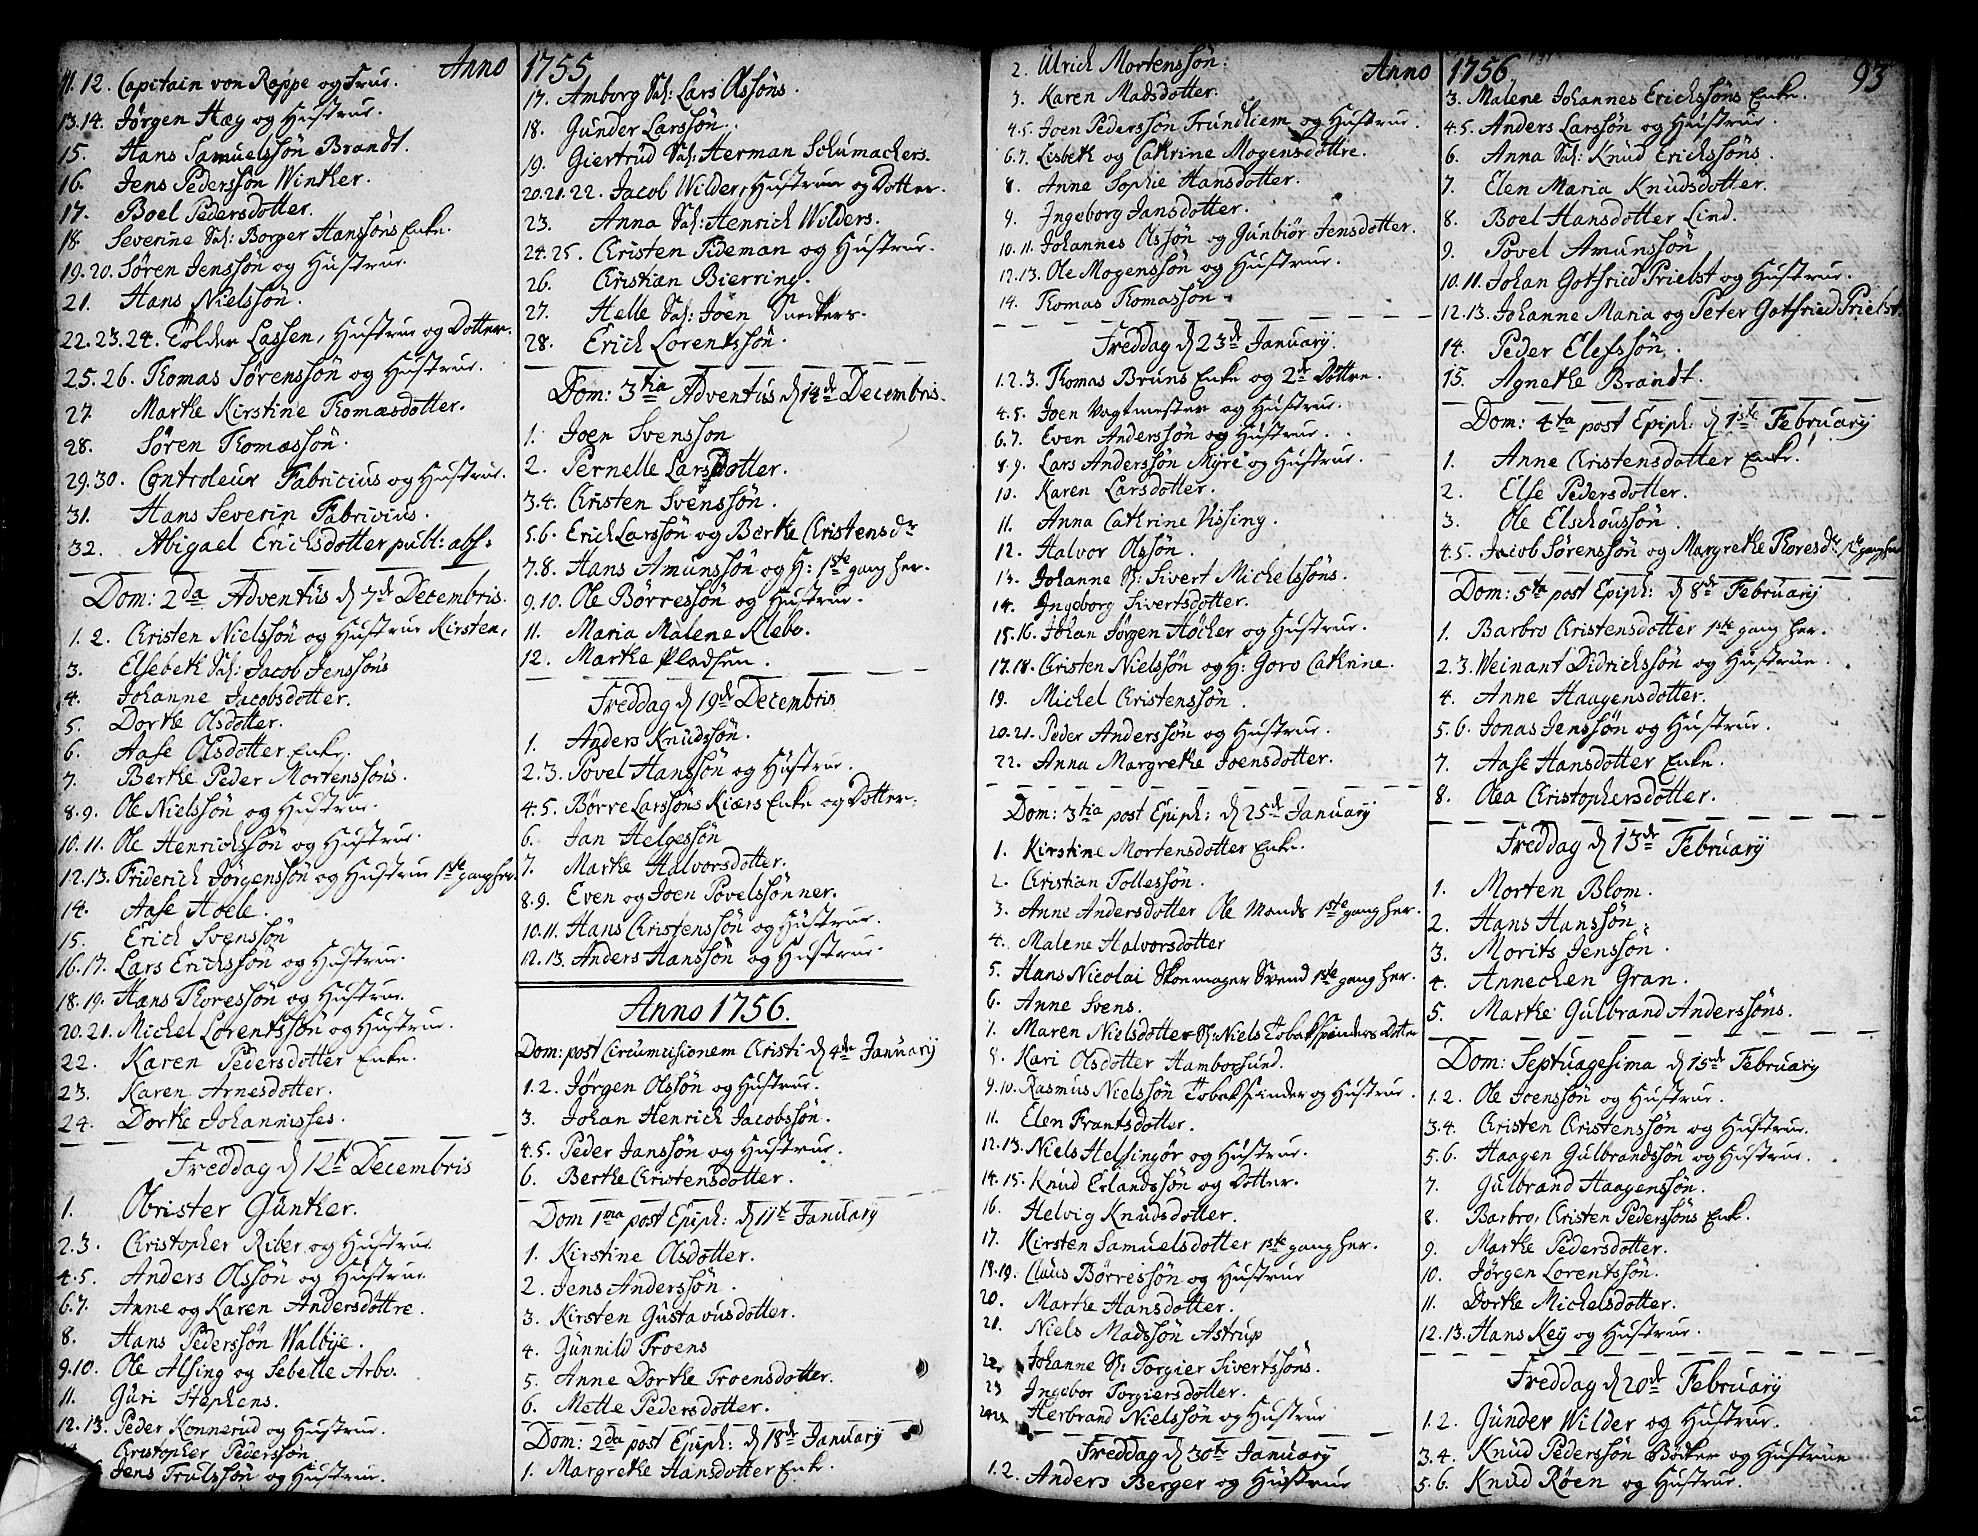 Anno 1755
11. 12. Capitain von Rappe og Frue.
13. 14. Jørgen Hæg og Hustrue.
15. Hans Samuelssøn Brandt.
16. Jens Pederssøn Winther.
17. Boel Pedersdotter.
18. Severine Sal: Borger Hanssøns Enke.
19. 20. Søren Jenssøn og Hustrue.
21. Hans Nielssøn.
22. 23. 24. Tolder Lassen, Hustrue og Dotter.
25. 26. Thomas Sørenssøn og Hustrue.
27. Marthe Kirstine Thomæsdotter.
28. Søren Thomæssøn.
29. 30. Controleur Fabricius og Hustrue.
31. Hans Severin Fabricius.
32. Abigael Erichsdotter publ: abs:
Dom: 2da Adventus d 7de Decembris.
1. 2. Christen Nielssøn og Hustrue Kirsten.
3. Elsebeth Sal: Jacob Jenssøns
4. Johanne Jacobsdotter.
5. Dorthe Olsdotter.
6. Aase Olsdotter Enke.
7. Berthe Peder Mortenssøns.
8. 9. Ole Nielssøn og Hustrue.
10. 11. Ole Henrichssøn og Hustrue.
12. 13. Friderich Jørgenssøn og Hustrue 1ste gang her.
14. Aase Hoele.
15. Erich Svenssøn
16. 17. Lars Erichssøn og Hustrue.
18. 19. Hans Thoressøn og Hustrue.
20. 21. Michel Lorentssøn og Hustrue.
22. Karen Pedersdotter Enke.
23. Karen Arnesdotter.
24. Dorthe Johannisses.
Freddag d 12te Decembris
1. Obrister Günther.
2. 3. Christopher Riber og Hustrue.
4. 5. Anders Olssøn og Hustrue.
6. 7. Anne og Karen Andersdøttre.
8. Hans Pederssøn Walbye.
9. 10. Ole Alsing og Sebelle Arbo.
11. Guri Stephens.
12. 13. Peder Konnerud og Hustrue.
Christopher Pederssøn
Jens Trulssøn og Hustrue.
17. Amborg Sal: Lars Olssøns.
18. Gunder Larssøn.
19. Giertrud Sal: Herman Schumachers.
20. 21. 22. Jacob Wilder, Hustrue og Dotter.
23. Anna Sal: Henrich Wilders.
24. 25. Christen Tideman og Hustrue.
26. Christian Bierring.
27. Helle Sal: Joen Snedkers.
28. Erich Lorentssøn.
Dom: 3tia Adventus d 14de Decembris.
1. Joen Svenssøn
2. Pernelle Larsdotter.
3. 4. Christen Svenssøn.
5. 6. Erich Larssøn og Berthe Christensdr
7. 8. Hans Amunssøn og H: 1ste gang her.
9. 10. Ole Børressøn og Hustrue.
11. Maria Malene Klebo.
12. Marthe Pladsen.
Freddag d 19de Decembris
1. Anders Knudssøn.
2. 3. Povel Hanssøn og Hustrue.
4. 5. Børre Larssøns Kiærs Enke og Dotter.
6. Jan Helgessøn
7. Marthe Halvorsdotter.
8. 9. Even og Joen Povelssønner.
10. 11. Hans Christenssøn og Hustrue.
12. 13. Anders Hanssøn og Hustrue
Anno 1756.
Dom: post Circumcisionem Christi d 4de January
1. 2. Jørgen Olssøn og Hustrue.
3. Johan Henrich Jacobssøn.
4. 5. Peder Janssøn og Hustrue.
6. Berthe Christensdotter.
Dom 1ma post Epiph: d 11te January
1. Kirstine Olsdotter.
2. Jens Anderssøn.
3. Kirsten Gustavusdotter.
4. Gunnild Troens
5. Anne Dorthe Troensdotter.
6. Mette Pedersdotter.
Dom: 2da post Epiph: d 18de January
1. Margrethe Hansdotter Enke.
Anno 1756
93
2. Ulrich Mortenssøn.
3. Karen Madsdotter.
4. 5. Joen Pederssøn Trundhiem og Hustrue.
6. 7. Lisbeth og Cathrine Mogensdøttre.
8. Anne Sophie Hansdotter.
9. Ingeborg Jansdotter.
10. 11. Johannes Olssøn og Gunbiør Jensdotter.
12. 13. Ole Mogenssøn og Hustrue.
14. Thomas Thomassøn
Freddag d 23de January.
1. 2. 3. Thomas Bruns Enke og 2de Døttre.
4. 5. Joen Vagtmester og Hustrue.
6. 7. Even Anderssøn og Hustrue.
8. 9. Lars Anderssøn Myre og Hustrue.
10. Karen Larsdotter.
11. Anna Cathrine Vissing.
12. Halvor Olssøn.
13. Johanne Sl: Sivert Michelssøns.
14. Ingeborg Sivertsdotter.
15. 16. Johan Jørgen Høcker og Hustrue.
17. 18. Christen Nielssøn og H: Goro Cathrine.
19. Michel Christenssøn.
20. 21. Peder Anderssøn og Hustrue.
22. Anna Margrethe Joensdotter.
Dom: 3tia post Epiph: d 25de January
1. Kirstine Mortensdotter Enke.
2. Christian Tollessøn.
3. Anne Andersdotter Ole Monds 1ste gang her.
4. Malene Halvorsdotter
5. Hans Nicolai Skoemager Svend 1ste gang her.
6. Anne Svens.
7. Maren Nielsdotter Sl: Niels Tobakspinders Dotr
8. Kari Olsdotter Hamborsund.
9. 10. Rasmus Nielssøn Tobakspinder og Hustrue.
11. Elen Frantsdotter.
12. 13. Niels Helsingør og Hustrue.
14. 15. Knud Erlandssøn og Dotter.
16. Helvig Knudsdotter.
17. Kirsten Samuelsdotter 1ste gang her.
18. 19. Claus Børressøn og Hustrue
20. Marthe Hansdotter.
21. Niels Madssøn Astrup
22. Johanne Sl: Torgier Sivertssøns.
23 Ingebor Torgiersdotter.
Herbrand Nielssøn og Hustrue
Freddag d 30te January
1. 2. Anders Berger og Hustrue
3. Malene Johannes Erichssøns Enke.
4. 5. Anders Larssøn og Hustrue.
6. Anna Sal: Knud Erichssøns.
7. Elen Maria Knudsdotter.
8. Boel Hansdotter Lind.
9. Povel Amunssøn
10. 11. Johan Gotfried Prielst og Hustrue.
12. 13. Johanne Maria og Peter Gotfried Prielst.
14. Peder Elefssøn.
15. Agnethe Brandt.
Dom: 4ta post Epiph: d 1ste February
1. Anne Christensdotter Enke.
2. Else Pedersdotter.
3. Ole Elschoussøn.
4. 5. Jacob Sørenssøn og Margrethe Thoresdr 1ste gang her
Dom: 5ta post Epiph: d 8de February
1. Barbro Christensdotter 1ste gang her.
2. 3. Weinant Didrichssøn og Hustrue.
4. Anne Haagensdotter.
5. 6. Jonas Jenssøn og Hustrue.
7. Aase Hansdotter Enke.
8. Olea Christophersdotter.
Freddag d 13de February
1. Morten Blom.
2. Hans Hanssøn.
3. Morits Jenssøn.
4. Annechen Gran.
5. Marthe Gulbrand Anderssøns.
Dom: Septuagesima d 15de February
1. 2. Ole Joenssøn og Hustrue.
3. 4. Christen Christenssøn og Hustrue.
5. 6. Haagen Gulbrandssøn og Hustrue.
7. Gulbrand Haagenssøn.
8. Barbro, Christen Pederssøns Enke.
9. Marthe Pedersdotter.
10. Jørgen Lorentssøn.
11. Dorthe Michelsdotter.
12. 13. Hans Key og Hustrue.
Freddag d 20de February
1. 2. Gunder Wilder og Hustrue.
3. 4. Knud Pederssøn Bødker og Hustrue
5. 6. Knud Røen og Hustrue.